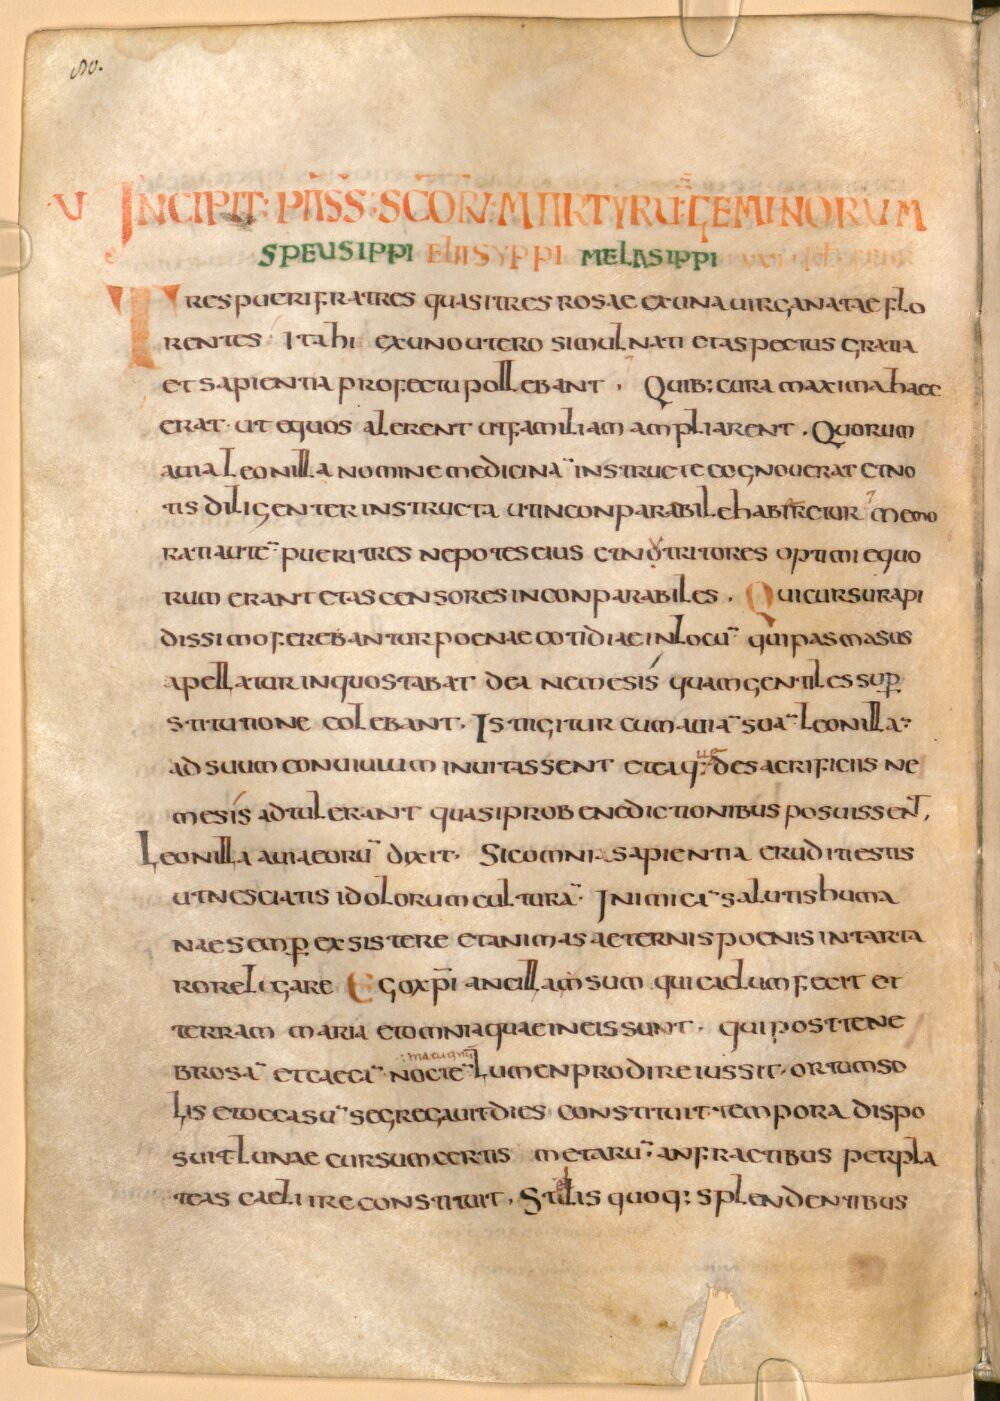 80.
V INCIPIT: PASS: SCORV: MARTYRU: GEMINORUM
SPEUSIPPI ELASYPPI MELASIPPI
Tres pueri fratres quasi tres rosae ex una uirga natae flo
rentes. Ita hi ex uno utero simul nati et aspectus gratia
et sapientia profectu pollebant. Quib; cura maxima haec
erat. ut equos alerent ut familiam ampliarent. Quorum
auia leonilla nomine medicinā instructe cognouerat et no
tis diligenter instructa ut inconparabile haberetur memo
rati autē pueri tres nepotes eius et notritores optimi equo
rum erant et ascensores inconparabiles. Qui cursu rapi
dissimo ferebantur poenae cotidiae in locū qui pasmasus
apellatur in quo stabat dea nemesis quam gentiles sup
stitutione colebant. Istigitur cum auiā suā leonillā
ad suum conuiuium inuitassent et ea q: de sacrificiis ne
mesis adtulerant quasi pro benedictionibus posuissent,
Leonilla auia eorū dixit. Sic omni a sapientia eruditi estis
ut nesciatis idolorum culturā. Inimicā salutis huma
nae semp exsistere et animas aeternis poenis in tarta
ro religare Ego xp̄i ancilla sum qui caelum fecit et
terram maria et omnia quae in eis sunt. qui post tene
brosā et caecā noctē lumen prodire iussit. ortum so
lis et occasū segregauit dies constituit tempora dispo
suit lunae cursum certis metarū anfractibus per pla
teas caeli ire constituit. Stellis quoq; splendentibus